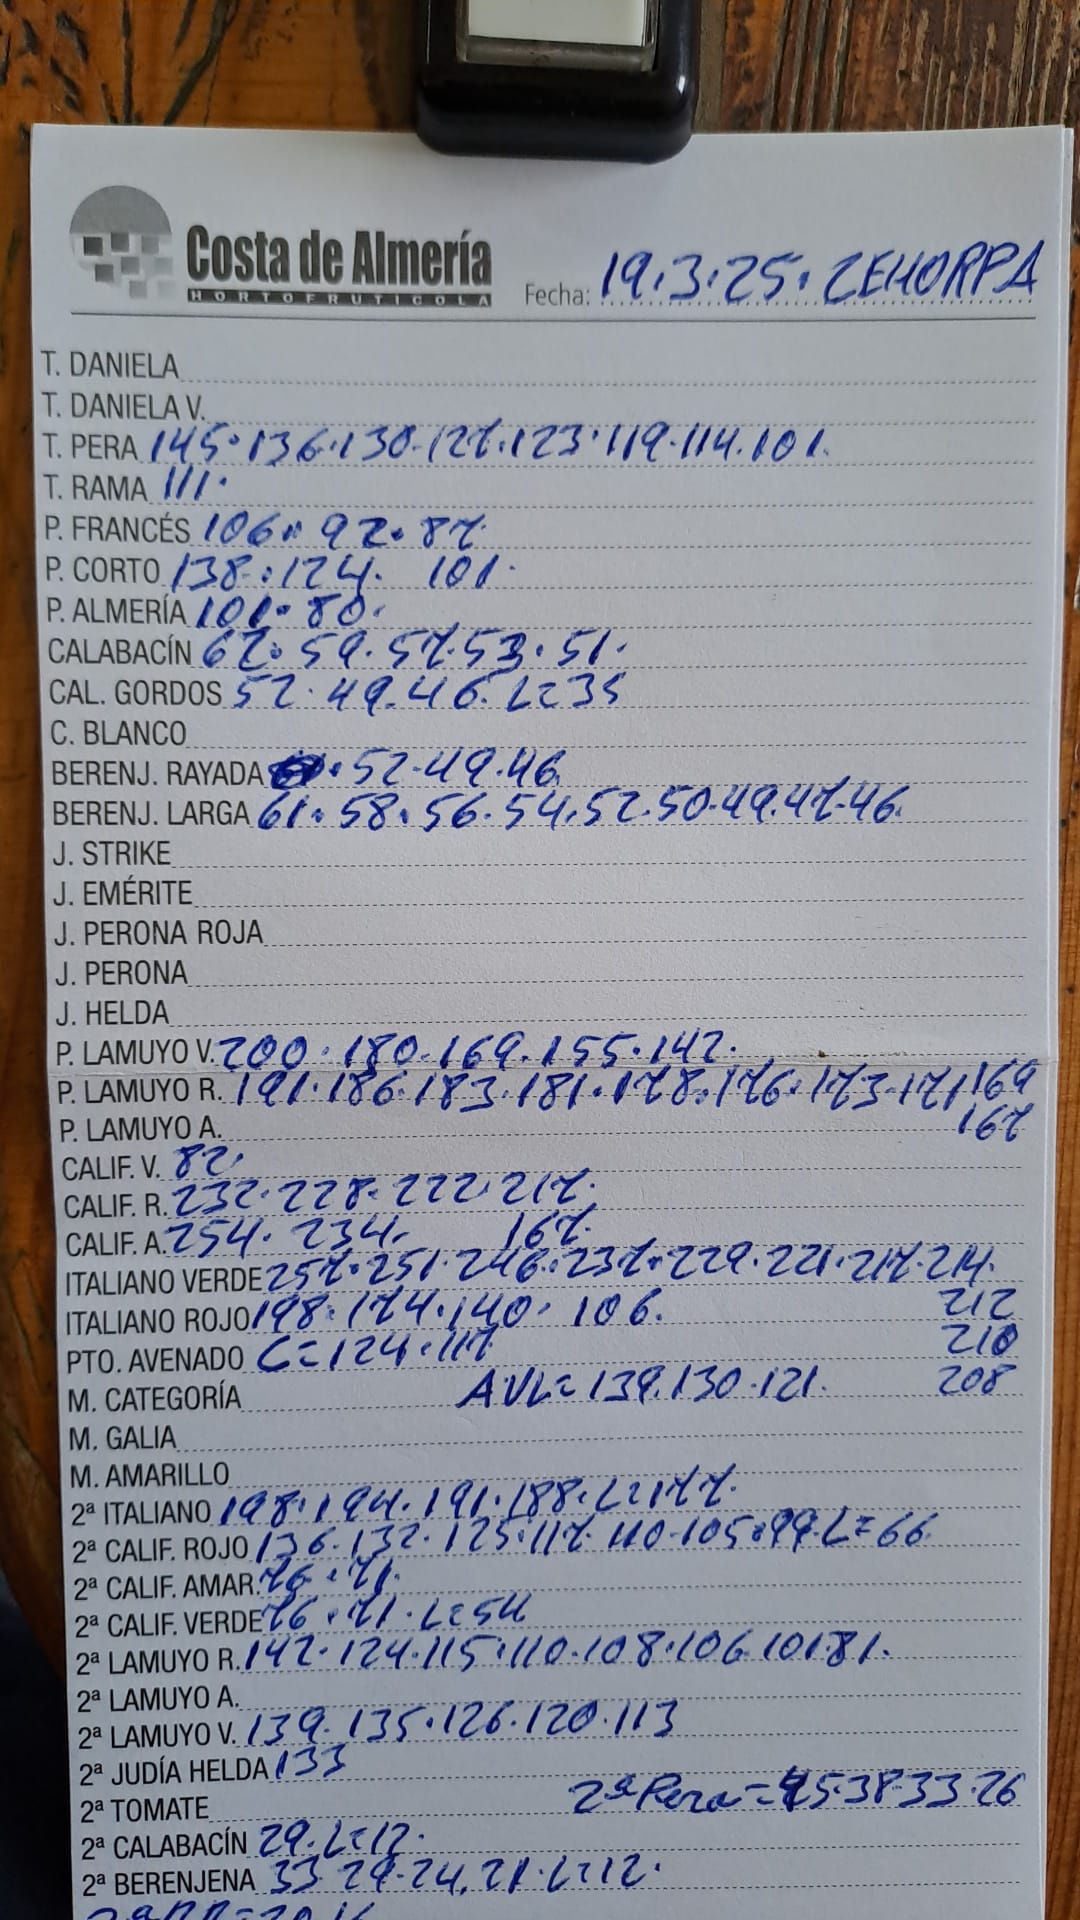 Costa de Almería
HORTOFRUTICOLA
Fecha: 19.3.25. ZEHORPA
T. DANIELA
T. DANIELA V.
T. PERA 145.136.130.127.123.119.114.101.
T. RAMA 111.
P. FRANCÉS 106. 92. 87
P. CORTO 138.124. 101.
P. ALMERÍA 101. 80.
CALABACÍN 67.59.57.53.51.
CAL. GORDOS 52.49.46.L=35
C. BLANCO
BERENJ. RAYADA .52.49.46
BERENJ. LARGA 61.58.56.54.52.50.49.47.46.
J. STRIKE
J. EMÉRITE
J. PERONA ROJA
J. PERONA
J. HELDA
P. LAMUYO V. 200.180.169.155.142.
P. LAMUYO R. 191.186.183.181.178.176.173.171 169
P. LAMUYO A. 167
CALIF. V. 82.
CALIF. R. 232.228.222.217.
CALIF. A. 254. 234. 167.
ITALIANO VERDE 257.251.246.237.229.221.217.214.
ITALIANO ROJO 198.174.140. 106. 212
PTO. AVENADO C=124.117 210
M. CATEGORÍA AVL=139.130.121. 208
M. GALIA
M. AMARILLO
2ª ITALIANO 198.194.191.188.L=177.
2ª CALIF. ROJO 136.132.125.117.110.105.99.L=66
2ª CALIF. AMAR. 76.71.
2ª CALIF. VERDE 76.71.L=54
2ª LAMUYO R. 142.124.115.110.108.106.101.81.
2ª LAMUYO A.
2ª LAMUYO V. 139.135.126.120.113
2ª JUDÍA HELDA 133
2ª TOMATE 2ª Pera=45.38.33.26
2ª CALABACÍN 29.L=12.
2ª BERENJENA 33.29.24.21.L=12.